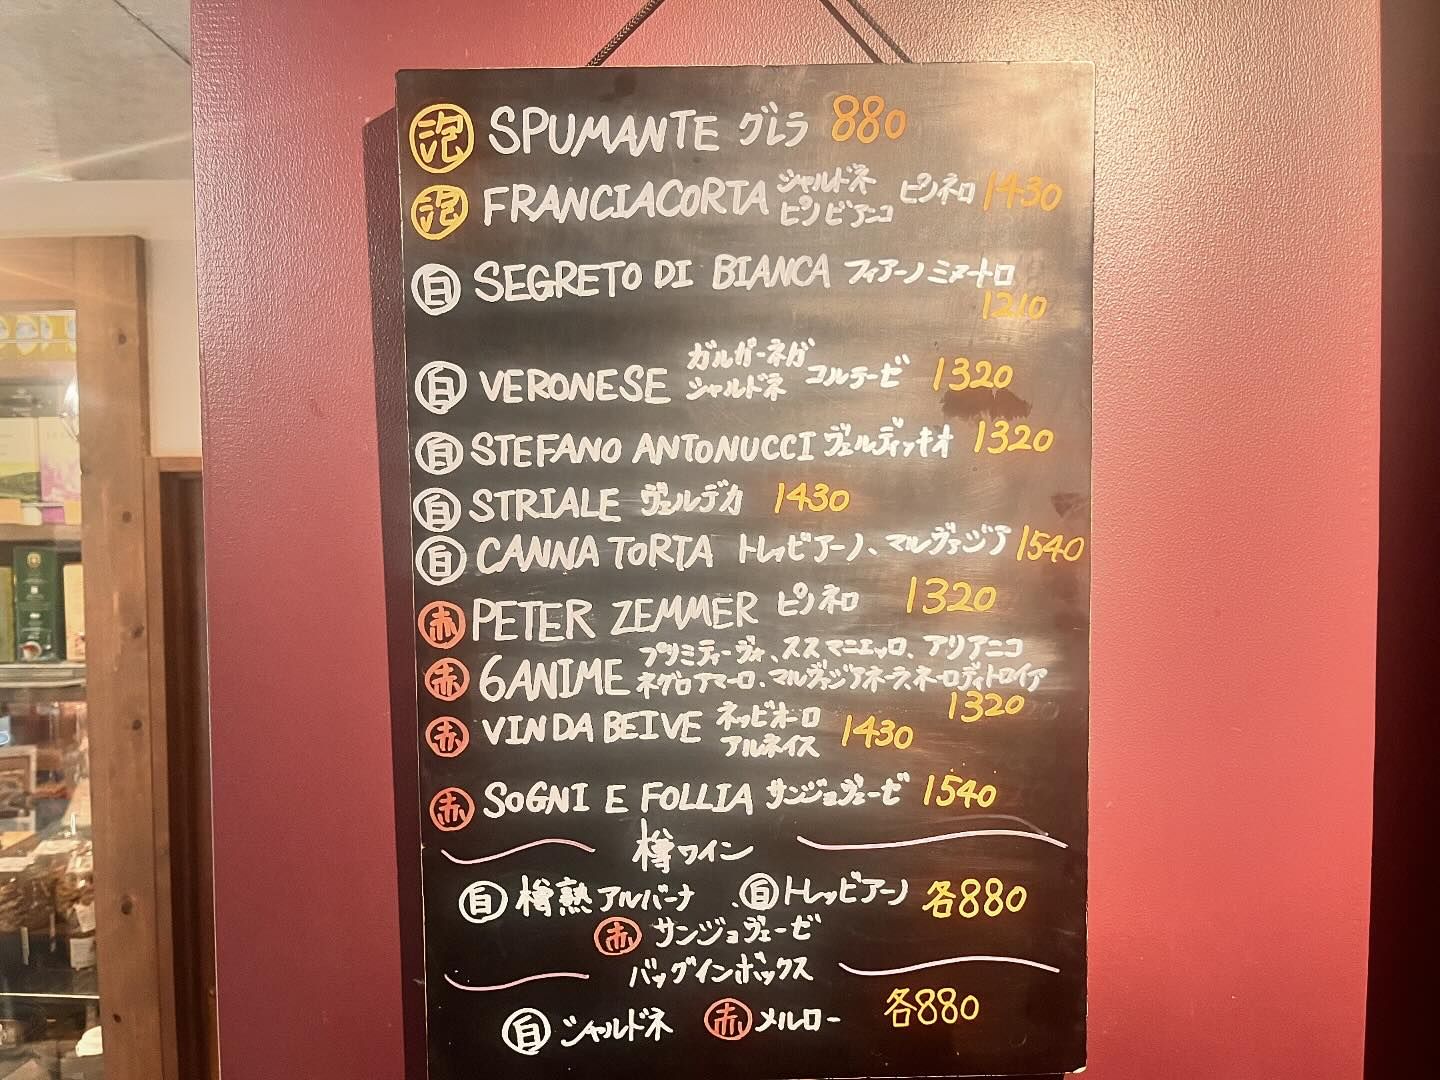 泡 SPUMANTE グレラ 880
泡 FRANCIACORTA シャルドネ ピノネロ 1430
ピノビアンコ
白 SEGRETO DI BIANCA フィアーノミヌートロ
1210
白 VERONESE ガルガーネガ コルテーゼ 1320
シャルドネ
白 STEFANO ANTONUCCI ヴェルディッキオ 1320
白 STRIALE ヴェルデカ 1430
白 CANNA TORTA トレッビアーノ、マルヴァジア 1540
赤 PETER ZEMMER ピノネロ 1320
赤 6ANIME プリミティーヴォ、ススマニエッロ、アリアニコ
ネグロアマーロ、マルヴァジアネーラ、ネーロディトロイア
1320
赤 VINDABEIVE ネッビオーロ 1430
アルネイス
赤 SOGNI E FOLLIA サンジョヴェーゼ 1540
樽ワイン
白 樽熟アルバーナ、白トレッビアーノ 各880
赤 サンジョヴェーゼ
バッグインボックス
白 シャルドネ 赤 メルロー 各880